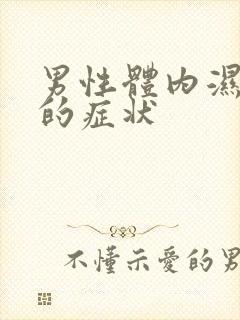 男性體內濕
的症状
不懂示愛的男